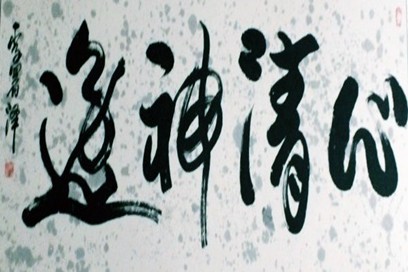 心清神逸